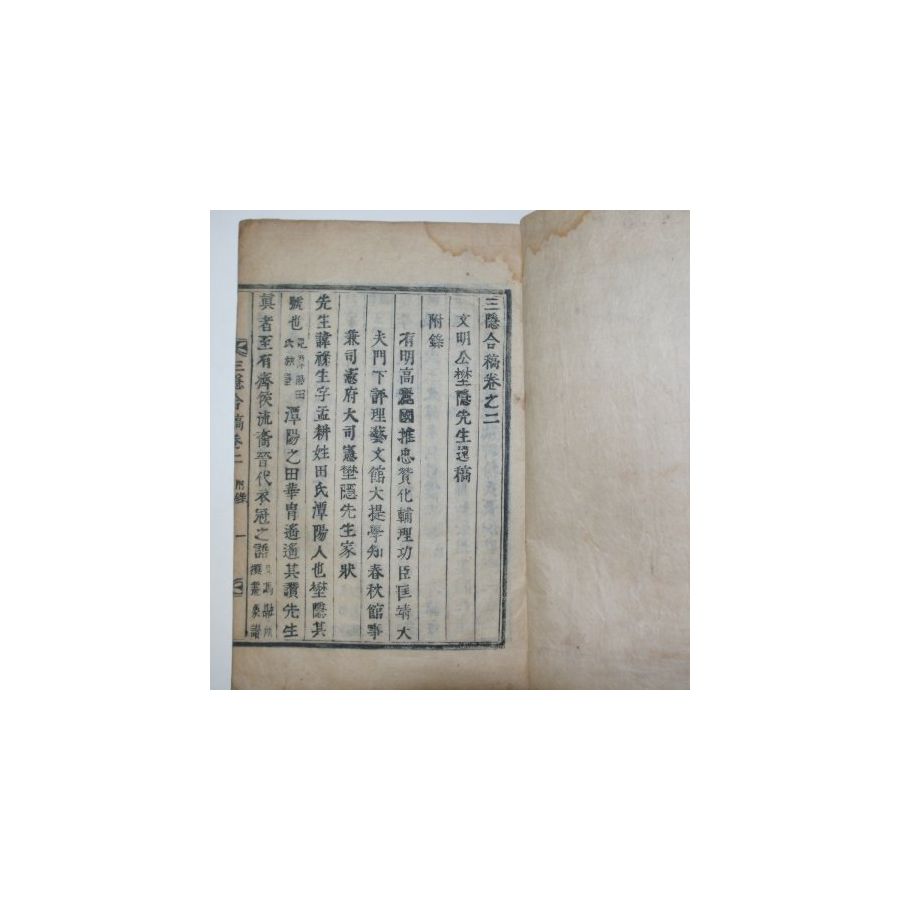 三隱合稿卷之二
文明公壄隱先生遺稿
附錄
有明高麗國推忠贊化輔理功臣匡靖大
夫門下評理藝文館大提學知春秋館事
兼司憲府大司憲壄隱先生家狀
先生諱祿生字孟耕姓田氏潭陽人也壄隱其
號也 潭陽之田華胄遙遙其讚先生
眞者至有齊侯流裔晉代衣冠之語
三隱合稿卷二 附錄 一